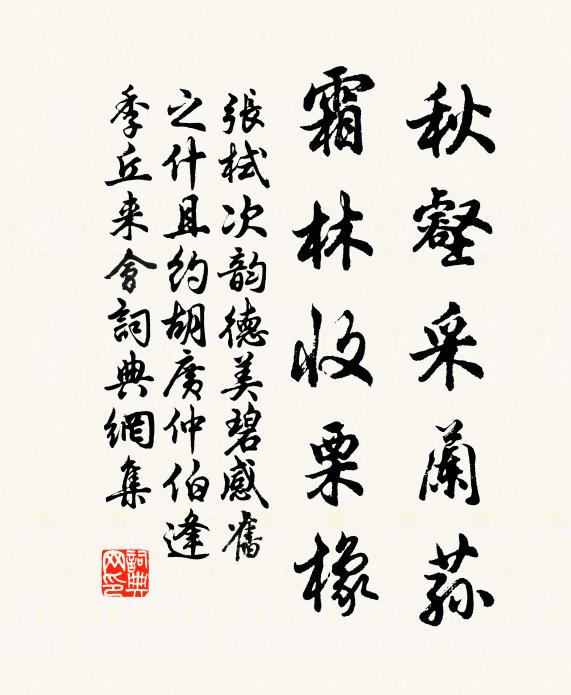 秋壑采蘭蓀
霜林收栗橡
張栻次韵德美碧感舊
之什且約胡廣仲伯逢
季丘来會詞典網集
詞典網印